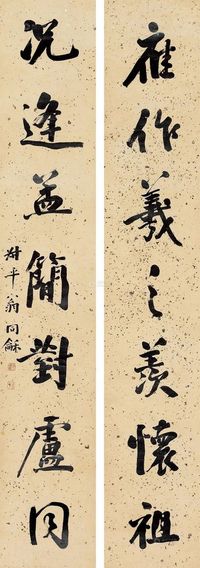 應作羲之羨懷祖
況逢孟簡對盧同
叔平翁同龢